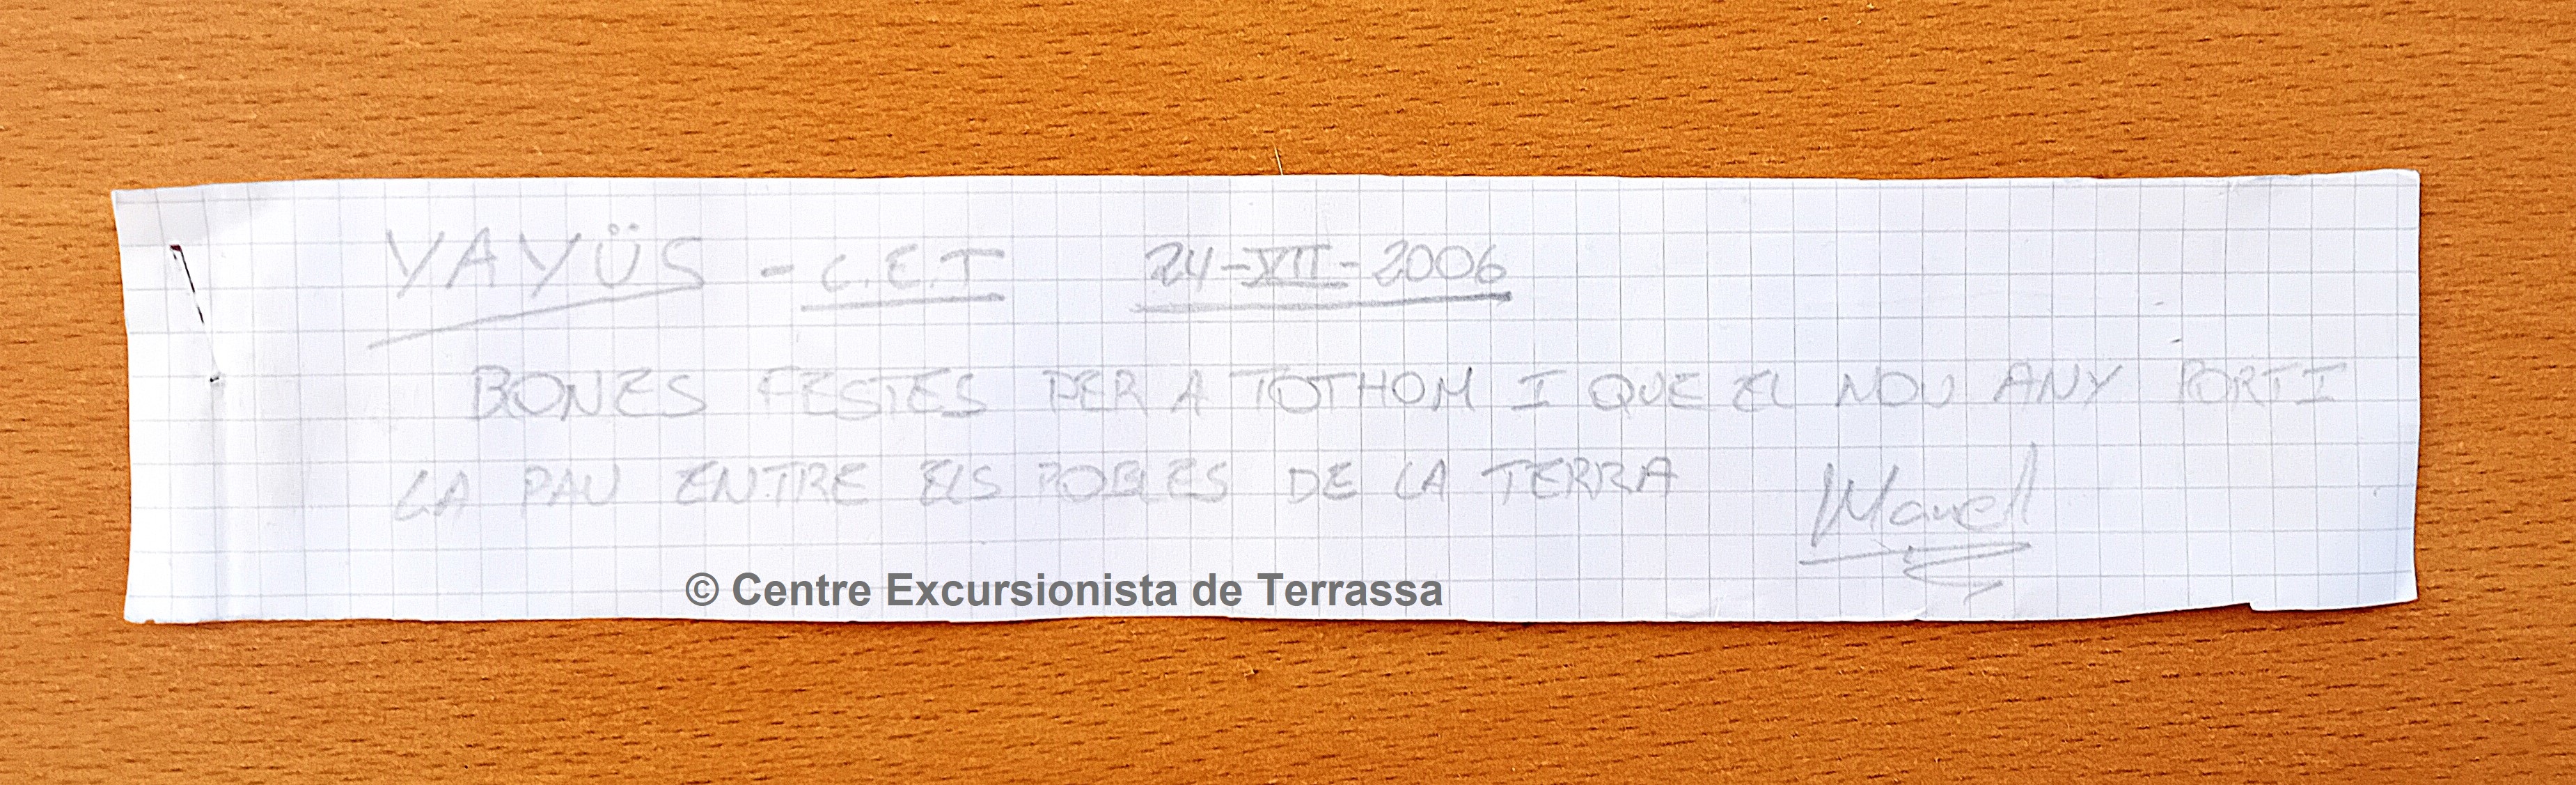 YAYÜS - C.E.T 24-XII-2006
BONES FESTES PER A TOTHOM I QUE EL NOU ANY PORTI
LA PAU ENTRE ELS POBLES DE LA TERRA
Manel
© Centre Excursionista de Terrassa